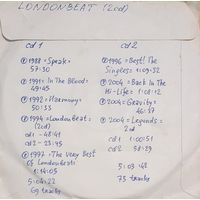 LONDONBEAT (2cd)
cd 1
① 1988 = Speak =
57:30
② 1991 = In The Blood =
49:45
③ 1992 = Harmony =
50:33
④ 1994 = Londonbeat =
(2cd)
cd1 - 41:41
cd2 - 23:45
⑤ 1997 = The Very Best
Of Londonbeat =
1:14:05
5:04:22
69 tracks
cd 2
① 1996 = Best! The
Singles = 1:09:32
② 2004 = Back In The
Hi-Life = 1:08:12
③ 2004 = Gravity =
46:17
④ 2004 = Legends =
2cd
cd1 1:00:51
cd2 58:29
5:03:48
73 tracks